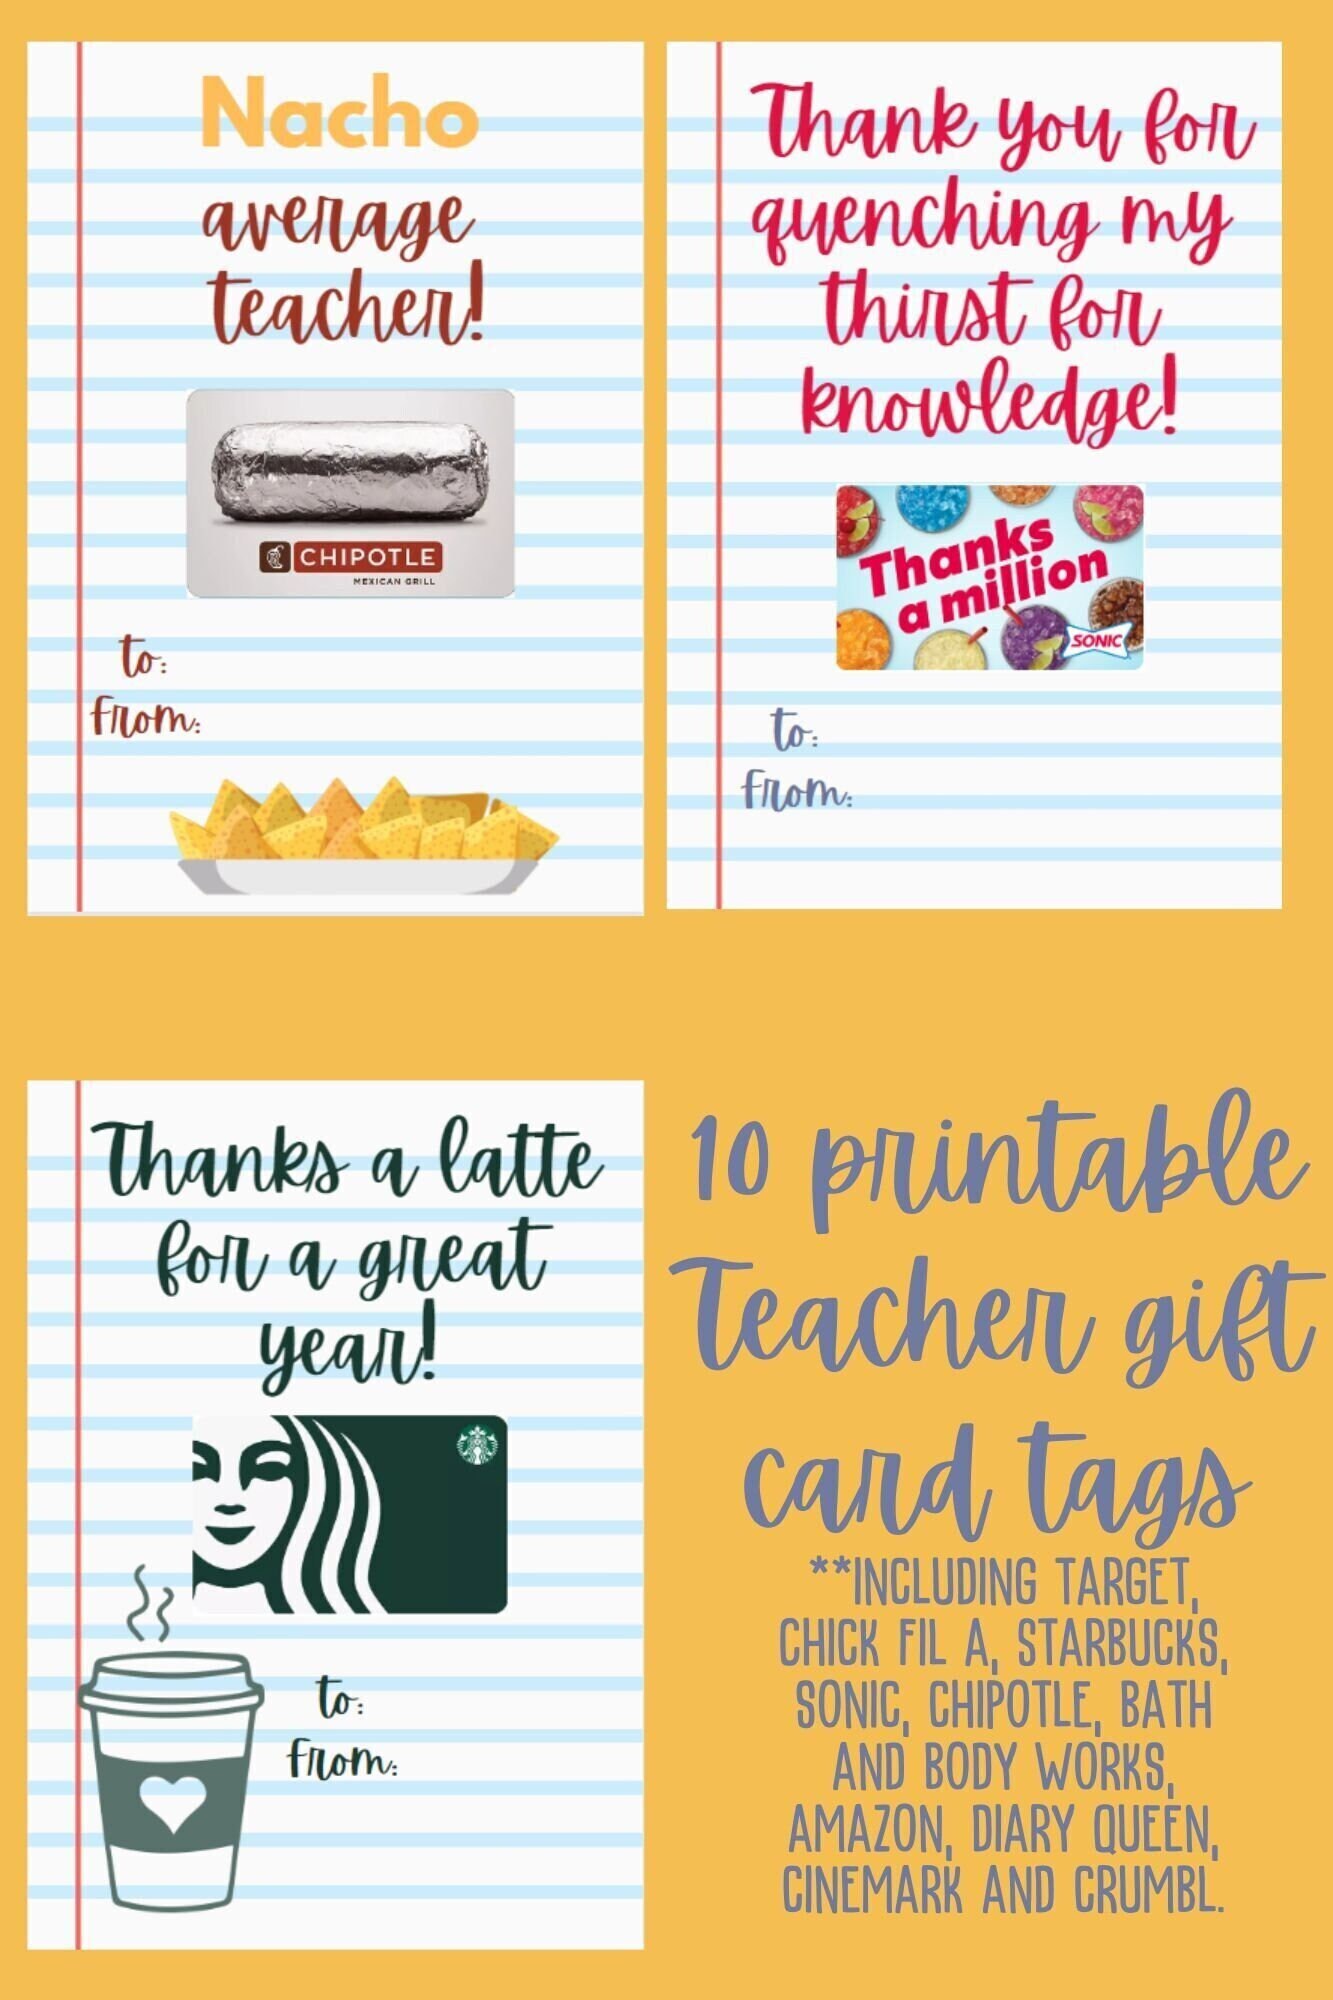 Nacho
average
teacher!
CHIPOTLE
MEXICAN GRILL
to:
From:
Thank you for
quenching my
thirst for
knowledge!
Thanks
a million
SONIC
to:
From:
Thanks a latte
for a great
year!
to:
From:
10 printable
Teacher gift
card tags
**INCLUDING TARGET,
CHICK FIL A, STARBUCKS,
SONIC, CHIPOTLE, BATH
AND BODY WORKS,
AMAZON, DIARY QUEEN,
CINEMARK AND CRUMBL.